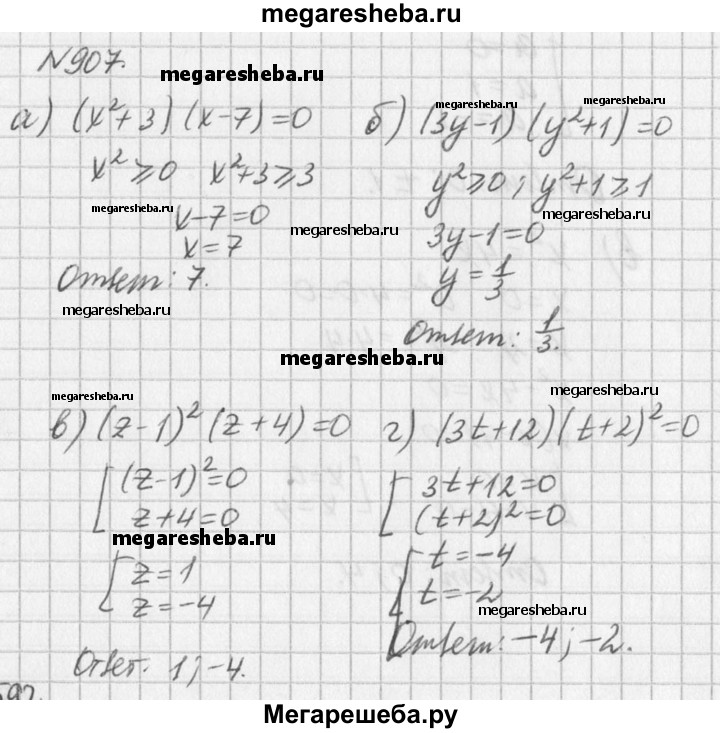 megaresheba.ru
№907.
megaresheba.ru
а) (x²+3)(x-7)=0
x²⩾0 x²+3⩾3
megaresheba.ru
x-7=0
x=7
Ответ: 7.
megaresheba.ru
megaresheba.ru
megaresheba.ru
б) (3y-1)(y²+1)=0
y²⩾0; y²+1⩾1
megaresheba.ru
megaresheba.ru
3y-1=0
y=1/3
Ответ: 1/3.
megaresheba.ru
megaresheba.ru
megaresheba.ru
в) (z-1)²(z+4)=0
[(z-1)²=0
z+4=0
megaresheba.ru
[z=1
z=-4
Ответ. 1; -4.
г) (3t+12)(t+2)²=0
[3t+12=0
(t+2)²=0
[t=-4
t=-2
megaresheba.ru
Ответ: -4; -2.
Мегарешеба.ру